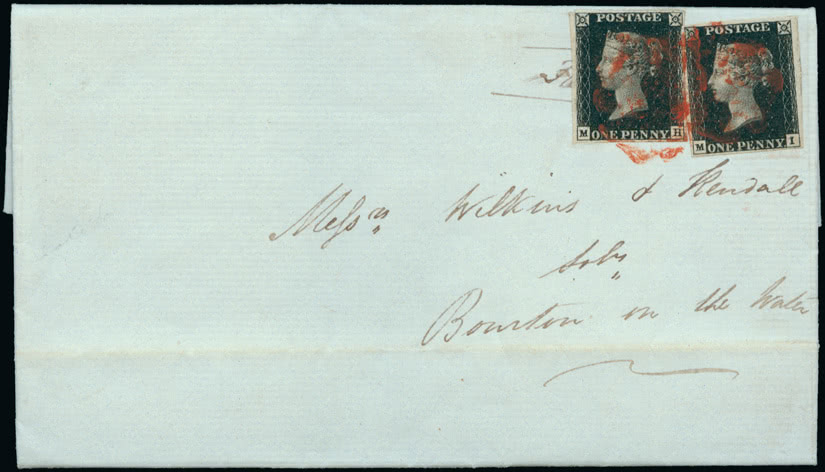 POSTAGE
ONE PENNY
M H
POSTAGE
ONE PENNY
M I
Messrs Wilkins & Kendall
Solrs
Bourton on the Water